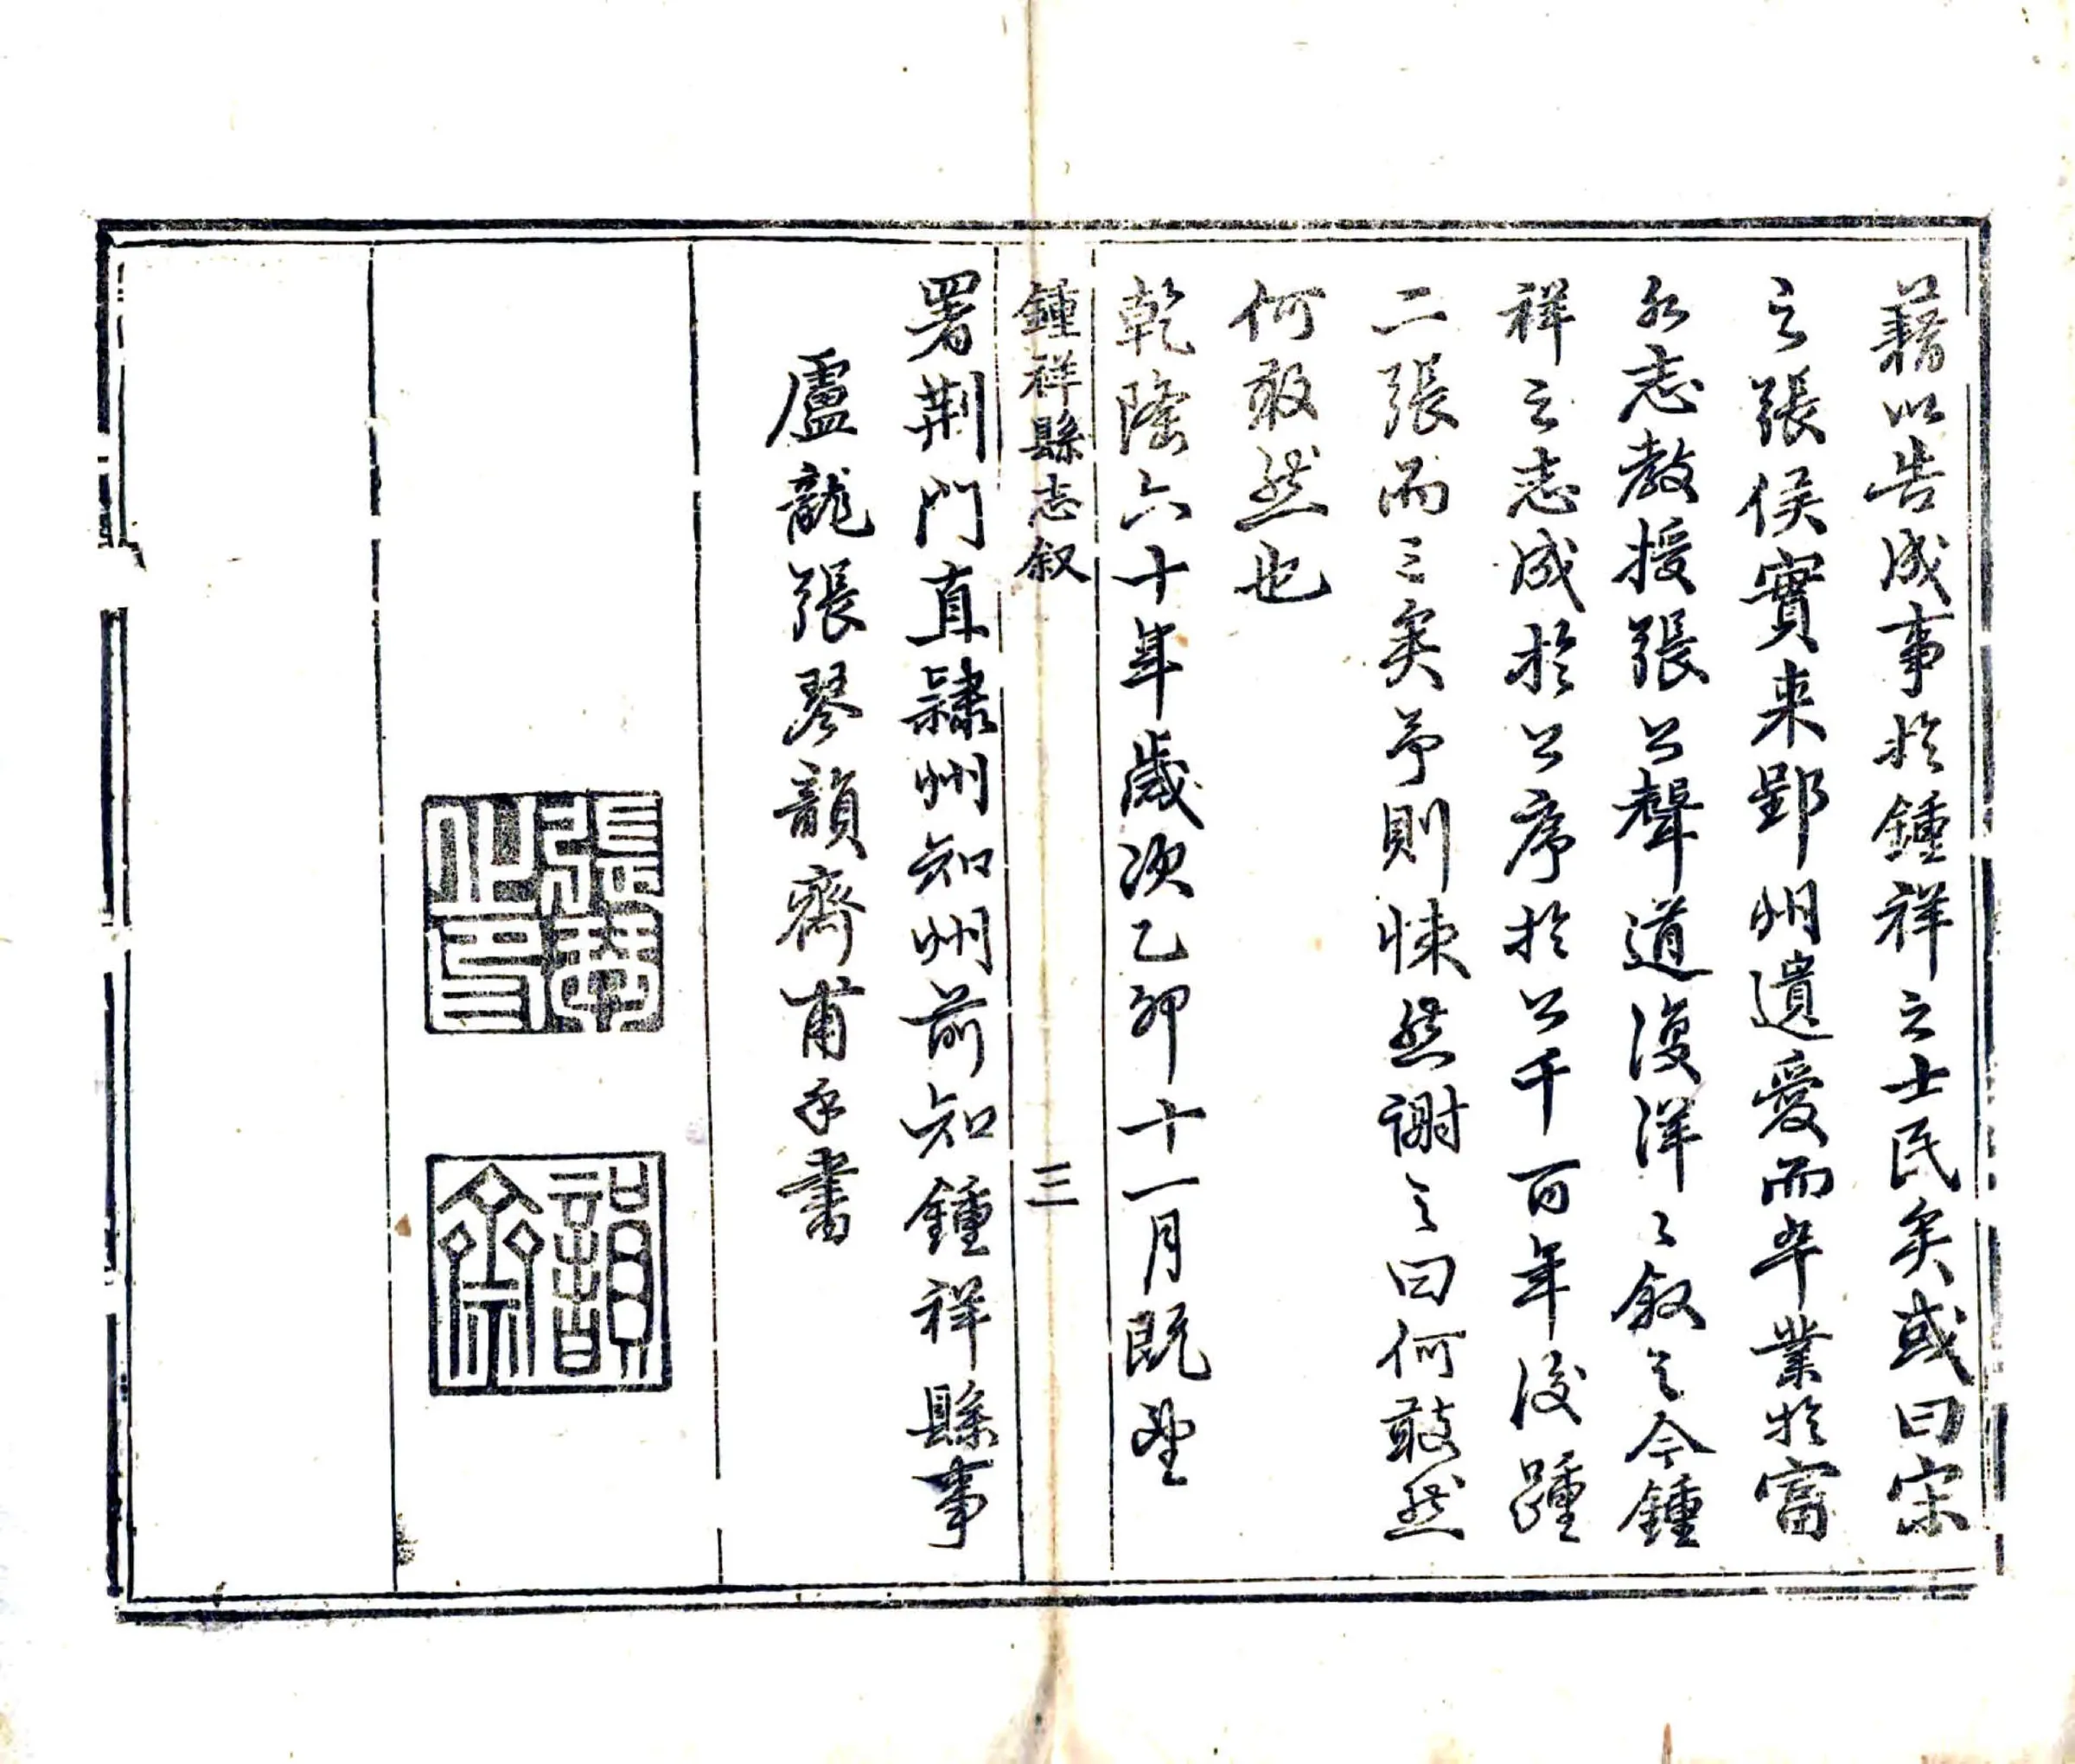 藉以告成事於鍾祥之士民矣或曰宋
之張侯實来郢州遺愛而卒業於富
水志教授張公聲道復洋々叙之今鍾
祥之志成於公序於公千百年後踵
二張而三矣予則悚然謝之曰何敢然
何敢然也
乾隆六十年歲次乙卯十一月既望
鍾祥縣志叙
三
署荆門直隸州知州前知鍾祥縣事
盧龍張琴韻齋甫手書
張琴之印
韻齋